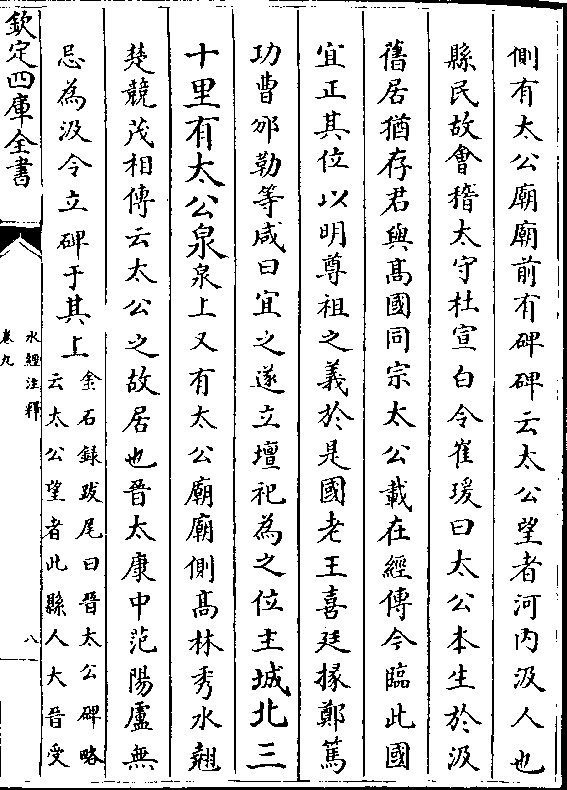 側有太公廟廟前有碑碑云太公望者河内汲人也
縣民故會稽太守杜宣白令崔瑗曰太公本生於汲
舊居猶存君與髙國同宗太公載在經傳今臨此國
宜正其位以明尊祖之義於是國老王喜廷掾鄭篤
功曹邠勒等咸曰宜之遂立壇祀為之位主城北三
十里有太公泉泉上又有太公廟廟側髙林秀水翹
楚競茂相傳云太公之故居也晉太康中范陽盧無
忌為汲令立碑于其上
金石録跋尾曰晉太公碑略
云太公望者此縣人大晉受
欽定四庫全書
水經注釋
卷九
八